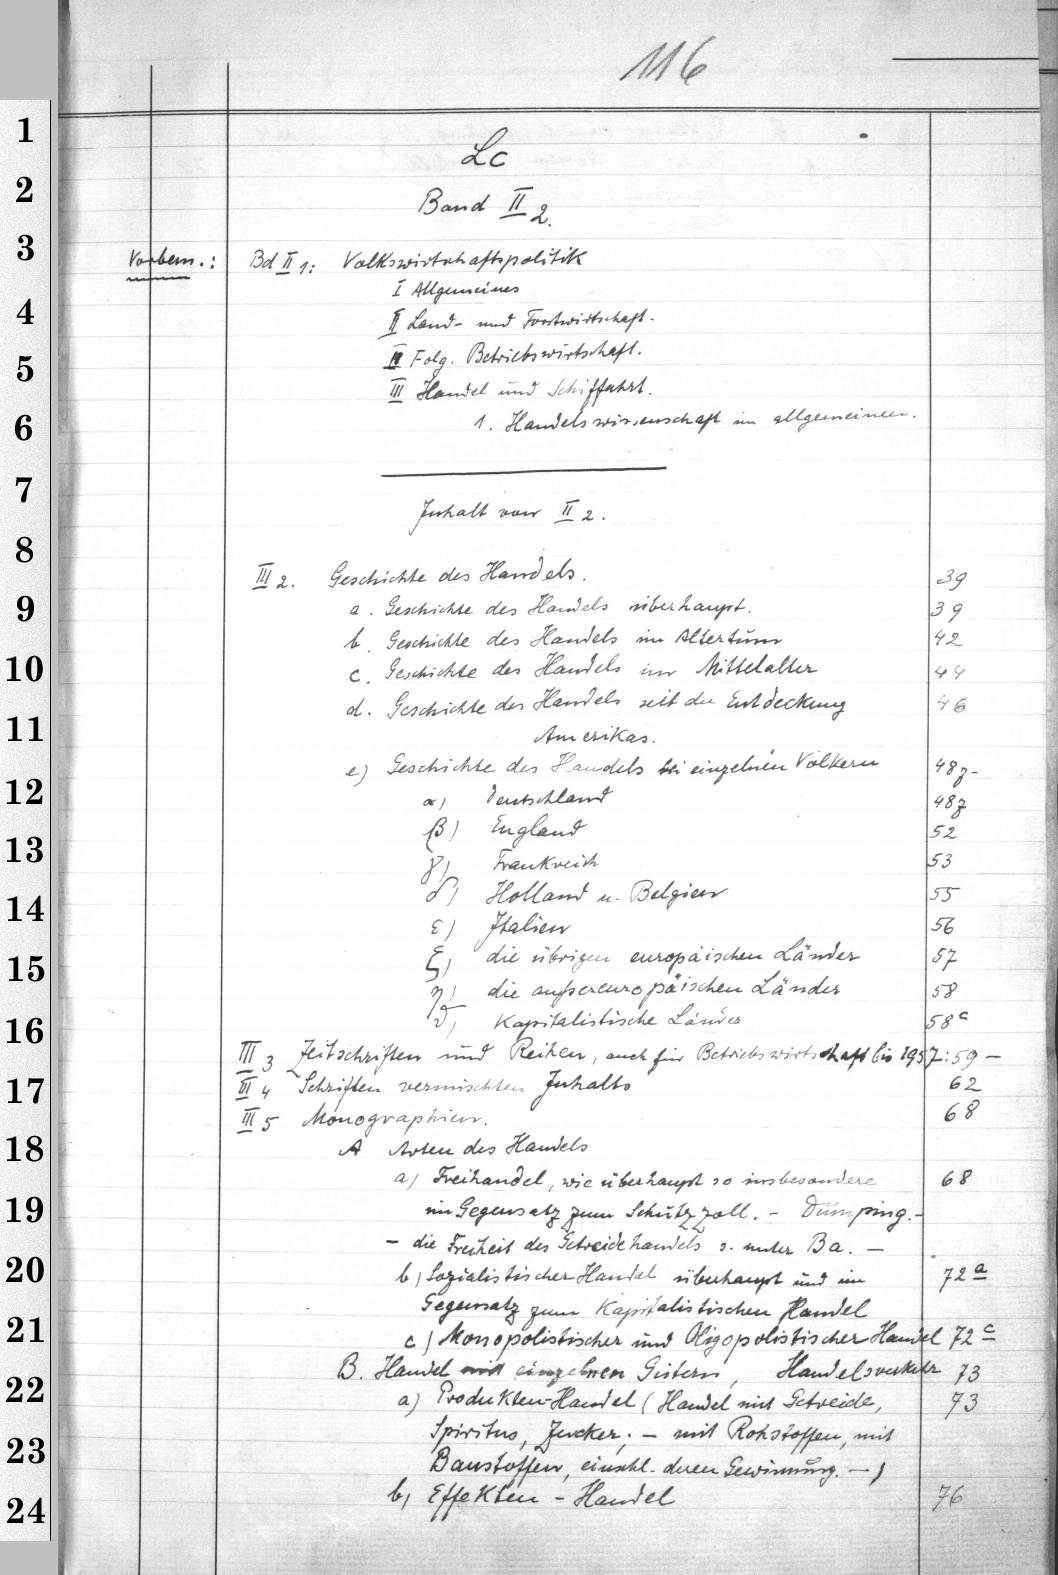 116
1
2
3
4
5
6
7
8
9
10
11
12
13
14
15
16
17
18
19
20
21
22
23
24
Lc
Band II 2.
Vorbem.: Bd II 1: Volkswirtschaftspolitik
I Allgemeines
II Land- und Forstwirtschaft.
II Folg. Betriebswirtschaft.
III Handel und Schiffahrt.
1. Handelswissenschaft im allgemeinen.
Inhalt von II 2.
III 2. Geschichte des Handels. 39
a. Geschichte des Handels überhaupt. 39
b. Geschichte des Handels im Altertum 42
c. Geschichte des Handels im Mittelalter 44
d. Geschichte des Handels seit der Entdeckung 46
Amerikas.
e) Geschichte des Handels bei einzelnen Völkern 48z-
α) Deutschland 48z
β) England 52
γ) Frankreich 53
δ) Holland u. Belgien 55
ε) Italien 56
ζ) die übrigen europäischen Länder 57
η) die außereuropäischen Länder 58
ϑ) Kapitalistische Länder 58c
III 3 Zeitschriften und Reihen, auch für Betriebswirtschaft bis 1957: 59 –
III 4 Schriften vermischten Inhalts 62
III 5 Monographien. 68
A Arten des Handels
a) Freihandel, wie überhaupt so insbesondere 68
im Gegensatz zum Schutzzoll. – Dumping. –
– die Freiheit des Getreidehandels s. unter Ba. –
b) Sozialistischer Handel überhaupt und im 72a
Gegensatz zum Kapitalistischen Handel
c) Monopolistischer und Oligopolistischer Handel 72c
B. Handel mit einzelnen Gütern, Handelsverkehr 73
a) Produkten-Handel (Handel mit Getreide, 73
Spiritus, Zucker; – mit Rohstoffen, mit
Baustoffen, einschl. deren Gewinnung. –)
b) Effekten-Handel 76